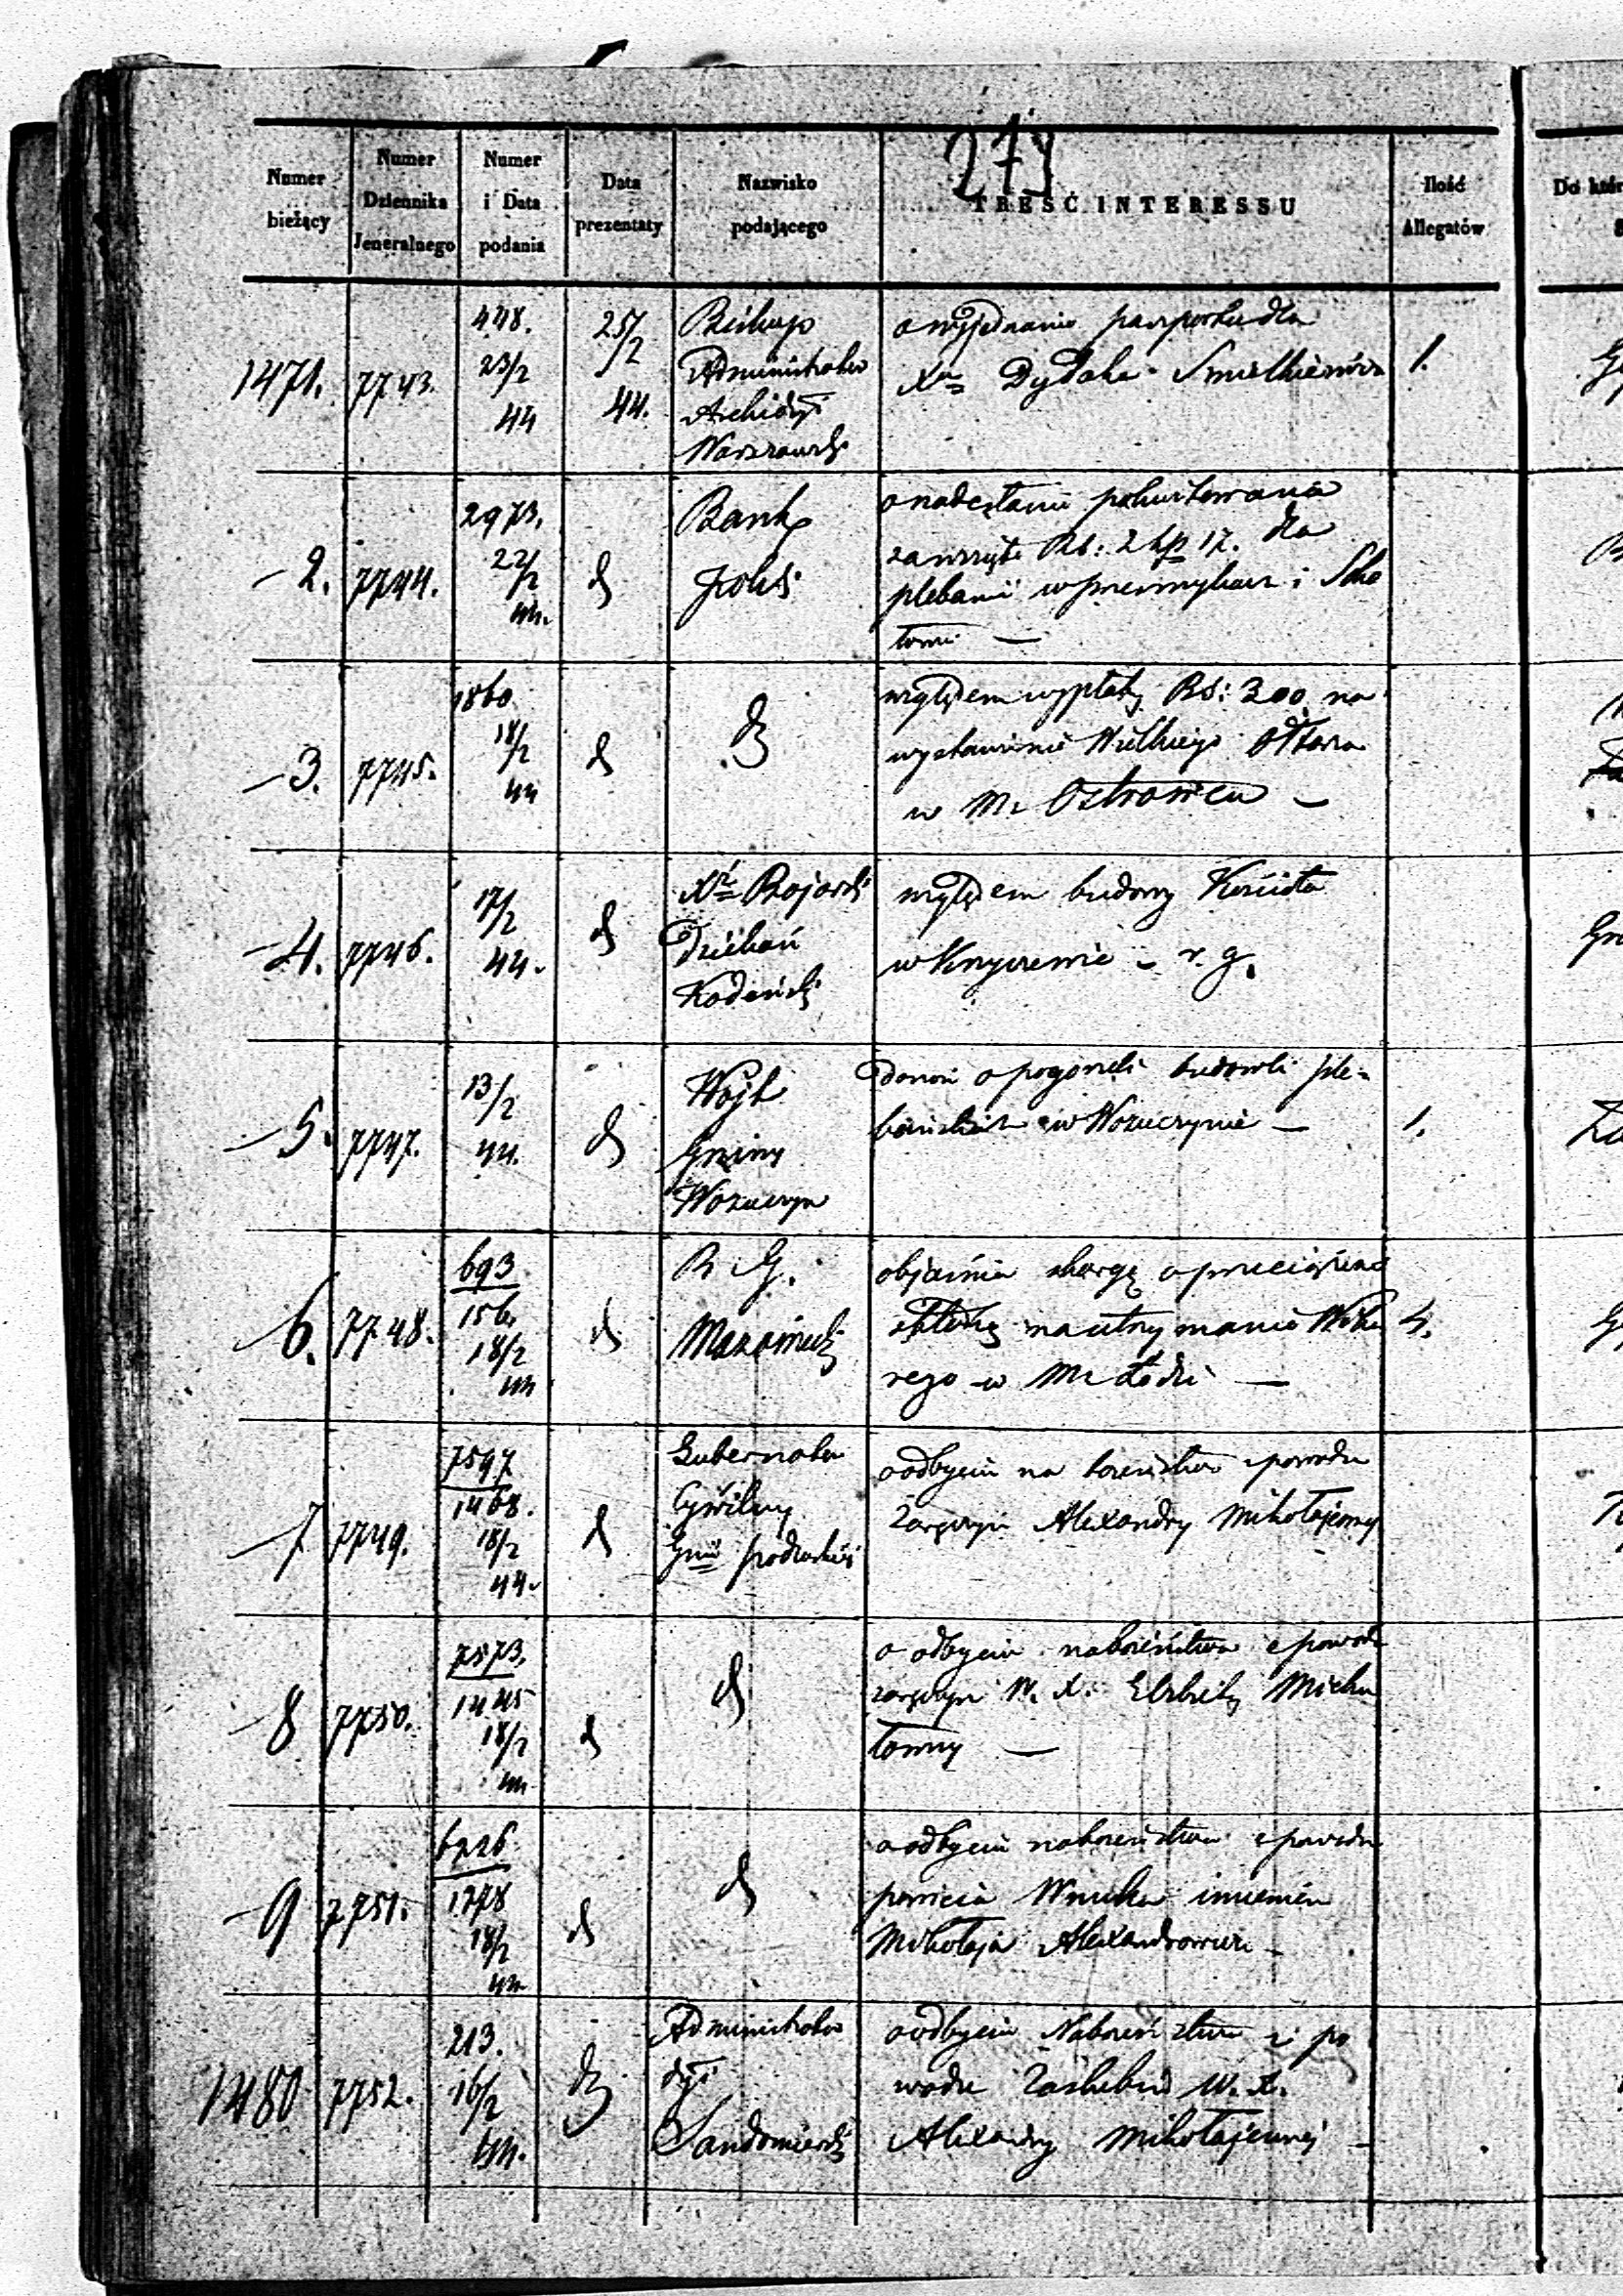 273
Numer bieżący
Numer Dziennika Jeneralnego
Numer i Data podania
Data prezentaty
Nazwisko podającego
TREŚĆ INTERESSU
Ilość Allegatów
1471.
7743.
448.
23/2
44
25/2
44.
Biskup
Administrator
Archidyi
Warszawski
o wyjednanie paszportu dla
Xa Dydaka
1.
2.
7744.
2973.
22/2
44.
d
Bank
Polski
o nadesłanie pokwitowania
Rs: 2 kp 17. dla
plebanii
3.
7745.
1860
18/2
44
d
d
względem wypłaty Rs: 300 na
wystawienie Wielkiego Ołtarza
w M. Ostrowcu —
4.
7746.
17/2
44.
d
Xdz Bojarski
Dziekan
Kodeński
względem budowy Kościoła
w — r. g.
5.
7747.
13/2
44.
d
Wójt
Gminy
Wożuczyn
donosi o pogorzeli budowli ple-
bańskich w Wożuczynie —
1.
6.
7748.
693
156.
18/2
44
d
R G.
Mazowiecki
objaśnia skargę o przeciążenie
składką na utrzymanie Wika
rego w M. Łodzi —
7
7749.
7597
1468.
18/2
44.
d
Gubernator
Cywilny
Gnii Podlaskiej
o odbyciu nabożeństwa z powodu
Zaręczyn Alexandry Mikołajewny
8
7750.
7573.
1445
18/2
44
d
d
o odbyciu nabożeństwa z powodu
zaręczyn W. X. Elżbiety Micha
łowny —
9
7751.
6226
1378
18/2
44
d
d
o odbyciu nabożeństwa z powodu
powicia Wnuka imieniem
Mikołaja Alexandrowicza —
1480
7752.
213.
16/2
44.
d
Administrator
dyi
Sandomierski
o odbyciu Nabożeństwa z po
wodu Zaślubin W. X.
Alexandry Mikołajewnej —